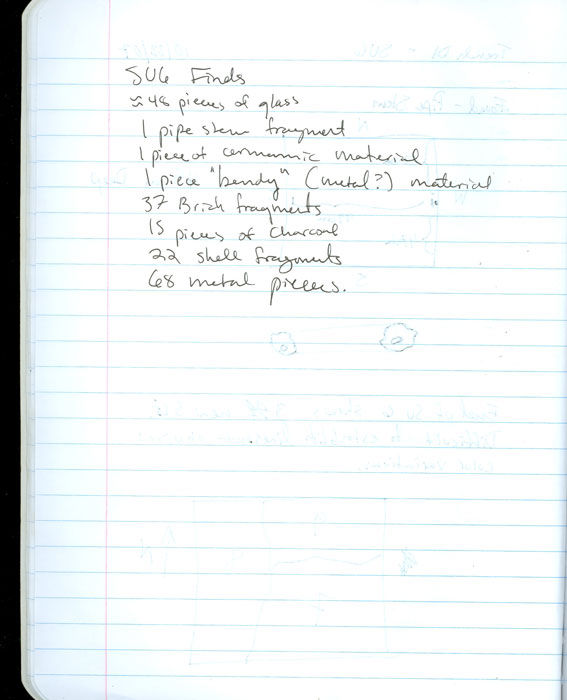 SU6 Finds
≈ 48 pieces of glass
1 pipe stem fragment
1 piece of cermamic material
1 piece "bendy" (metal?) material
37 Brick fragments
15 pieces of Charcoal
22 shell fragments
68 metal pieces.